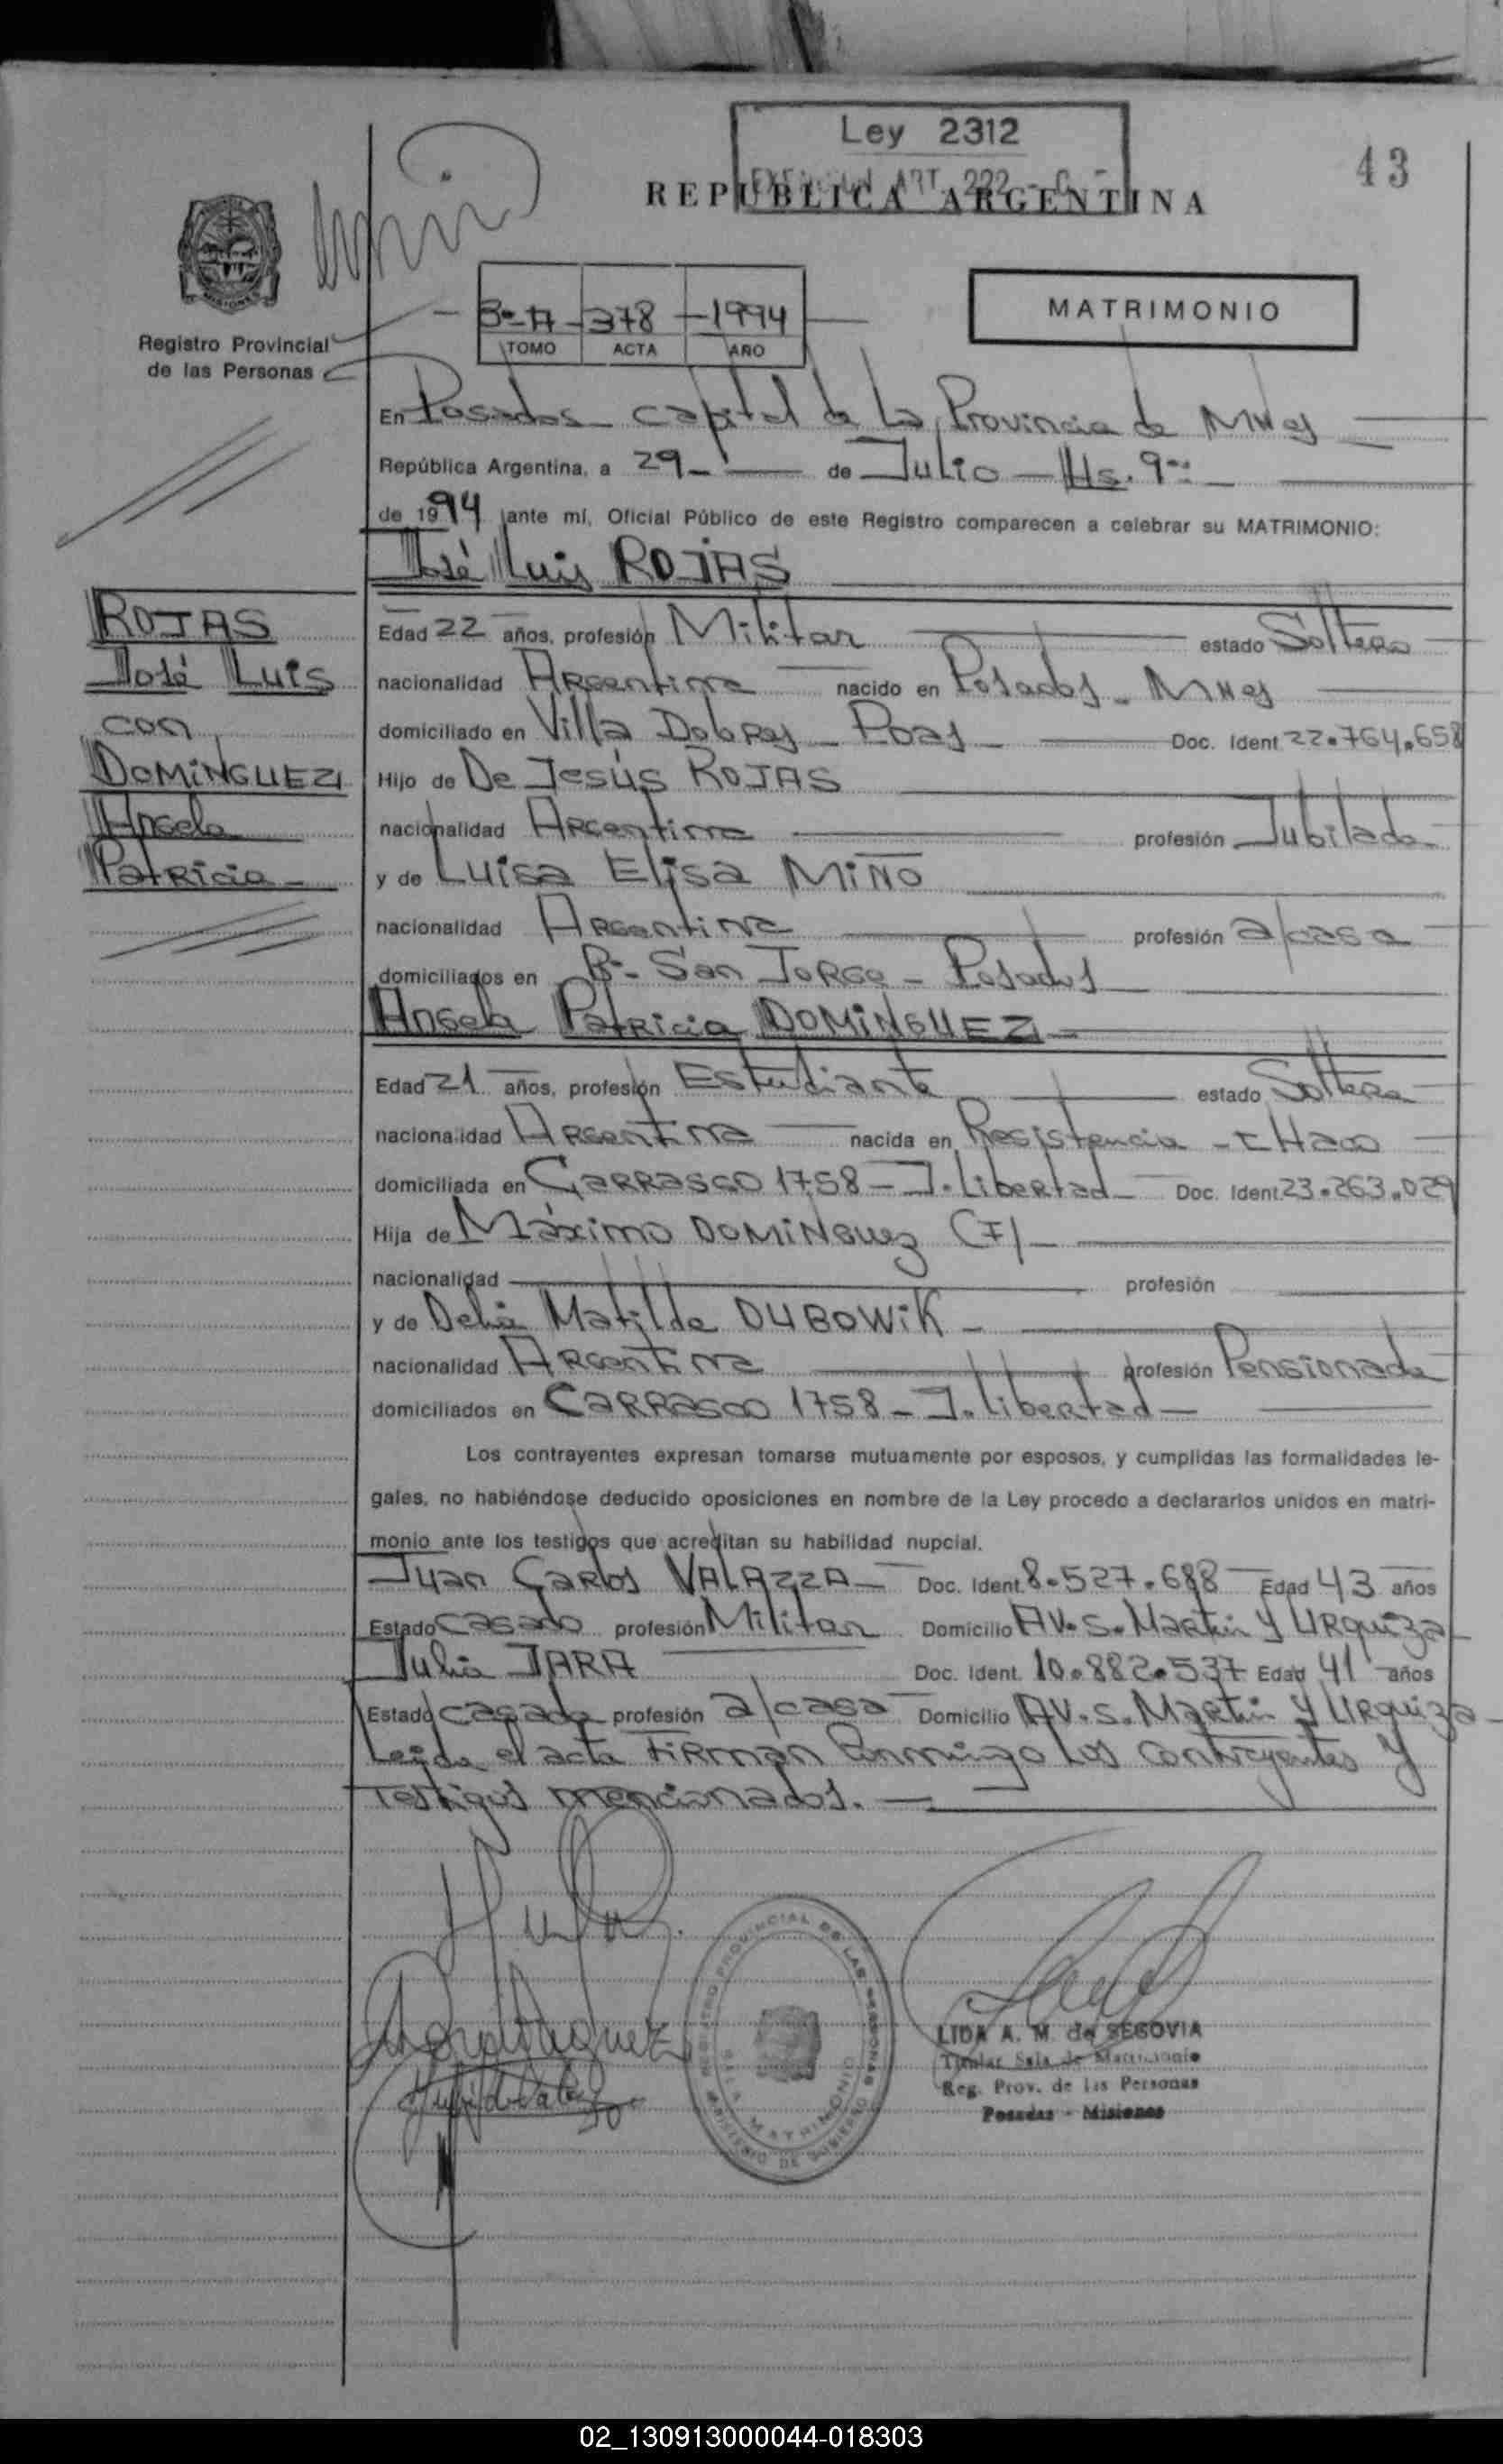 Ley 2312
43
REPUBLICA ARGENTINA
ART. 222
MISIONES
Registro Provincial
de las Personas
378 1994
TOMO ACTA AÑO
MATRIMONIO
En Posadas capital de la Provincia de Mnes
República Argentina, a 29 de Julio Hs. 9
de 1994 ante mí, Oficial Público de este Registro comparecen a celebrar su MATRIMONIO:
José Luis ROJAS
ROJAS
José Luis
con
DOMINGUEZ
Angela
Patricia
Edad 22 años, profesión Militar estado Soltero
nacionalidad Argentina nacido en Posadas - Mnes
domiciliado en Villa Dolores - Pdas Doc. Ident 22.764.658
Hijo de De Jesús ROJAS
nacionalidad Argentina profesión Jubilado
y de Luisa Elisa MIÑO
nacionalidad Argentina profesión a/casa
domiciliados en Bº San Jorge - Posadas
Angela Patricia DOMINGUEZ
Edad 21 años, profesión Estudiante estado Soltera
nacionalidad Argentina nacida en Resistencia - CHaco
domiciliada en CARRASCO 1758 - J. Libertad Doc. Ident 23.263.029
Hija de Máximo DOMINGUEZ (F)
nacionalidad profesión
y de Delia Matilde DUBOWIK
nacionalidad Argentina profesión Pensionada
domiciliados en CARRASCO 1758 - J. Libertad
Los contrayentes expresan tomarse mutuamente por esposos, y cumplidas las formalidades le-
gales, no habiéndose deducido oposiciones en nombre de la Ley procedo a declararlos unidos en matri-
monio ante los testigos que acreditan su habilidad nupcial.
Juan Carlos VALAZZA Doc. Ident. 8.527.688 Edad 43 años
Estado casado profesión Militar Domicilio AV. S. Martin y URquiza
Julia JARA Doc. Ident. 10.882.537 Edad 41 años
Estado casada profesión a/casa Domicilio AV. S. Martin y URquiza
Leida el acta FIRMAN Conmigo los contrayentes y
Testigos mencionados.
REGISTRO PROVINCIAL DE LAS PERSONAS
SALA MATRIMONIO
MINISTERIO DE GOBIERNO
LIDA A. M. de SEGOVIA
Titular Sala de Matrimonio
Reg. Prov. de las Personas
Posadas - Misiones
02_130913000044-018303